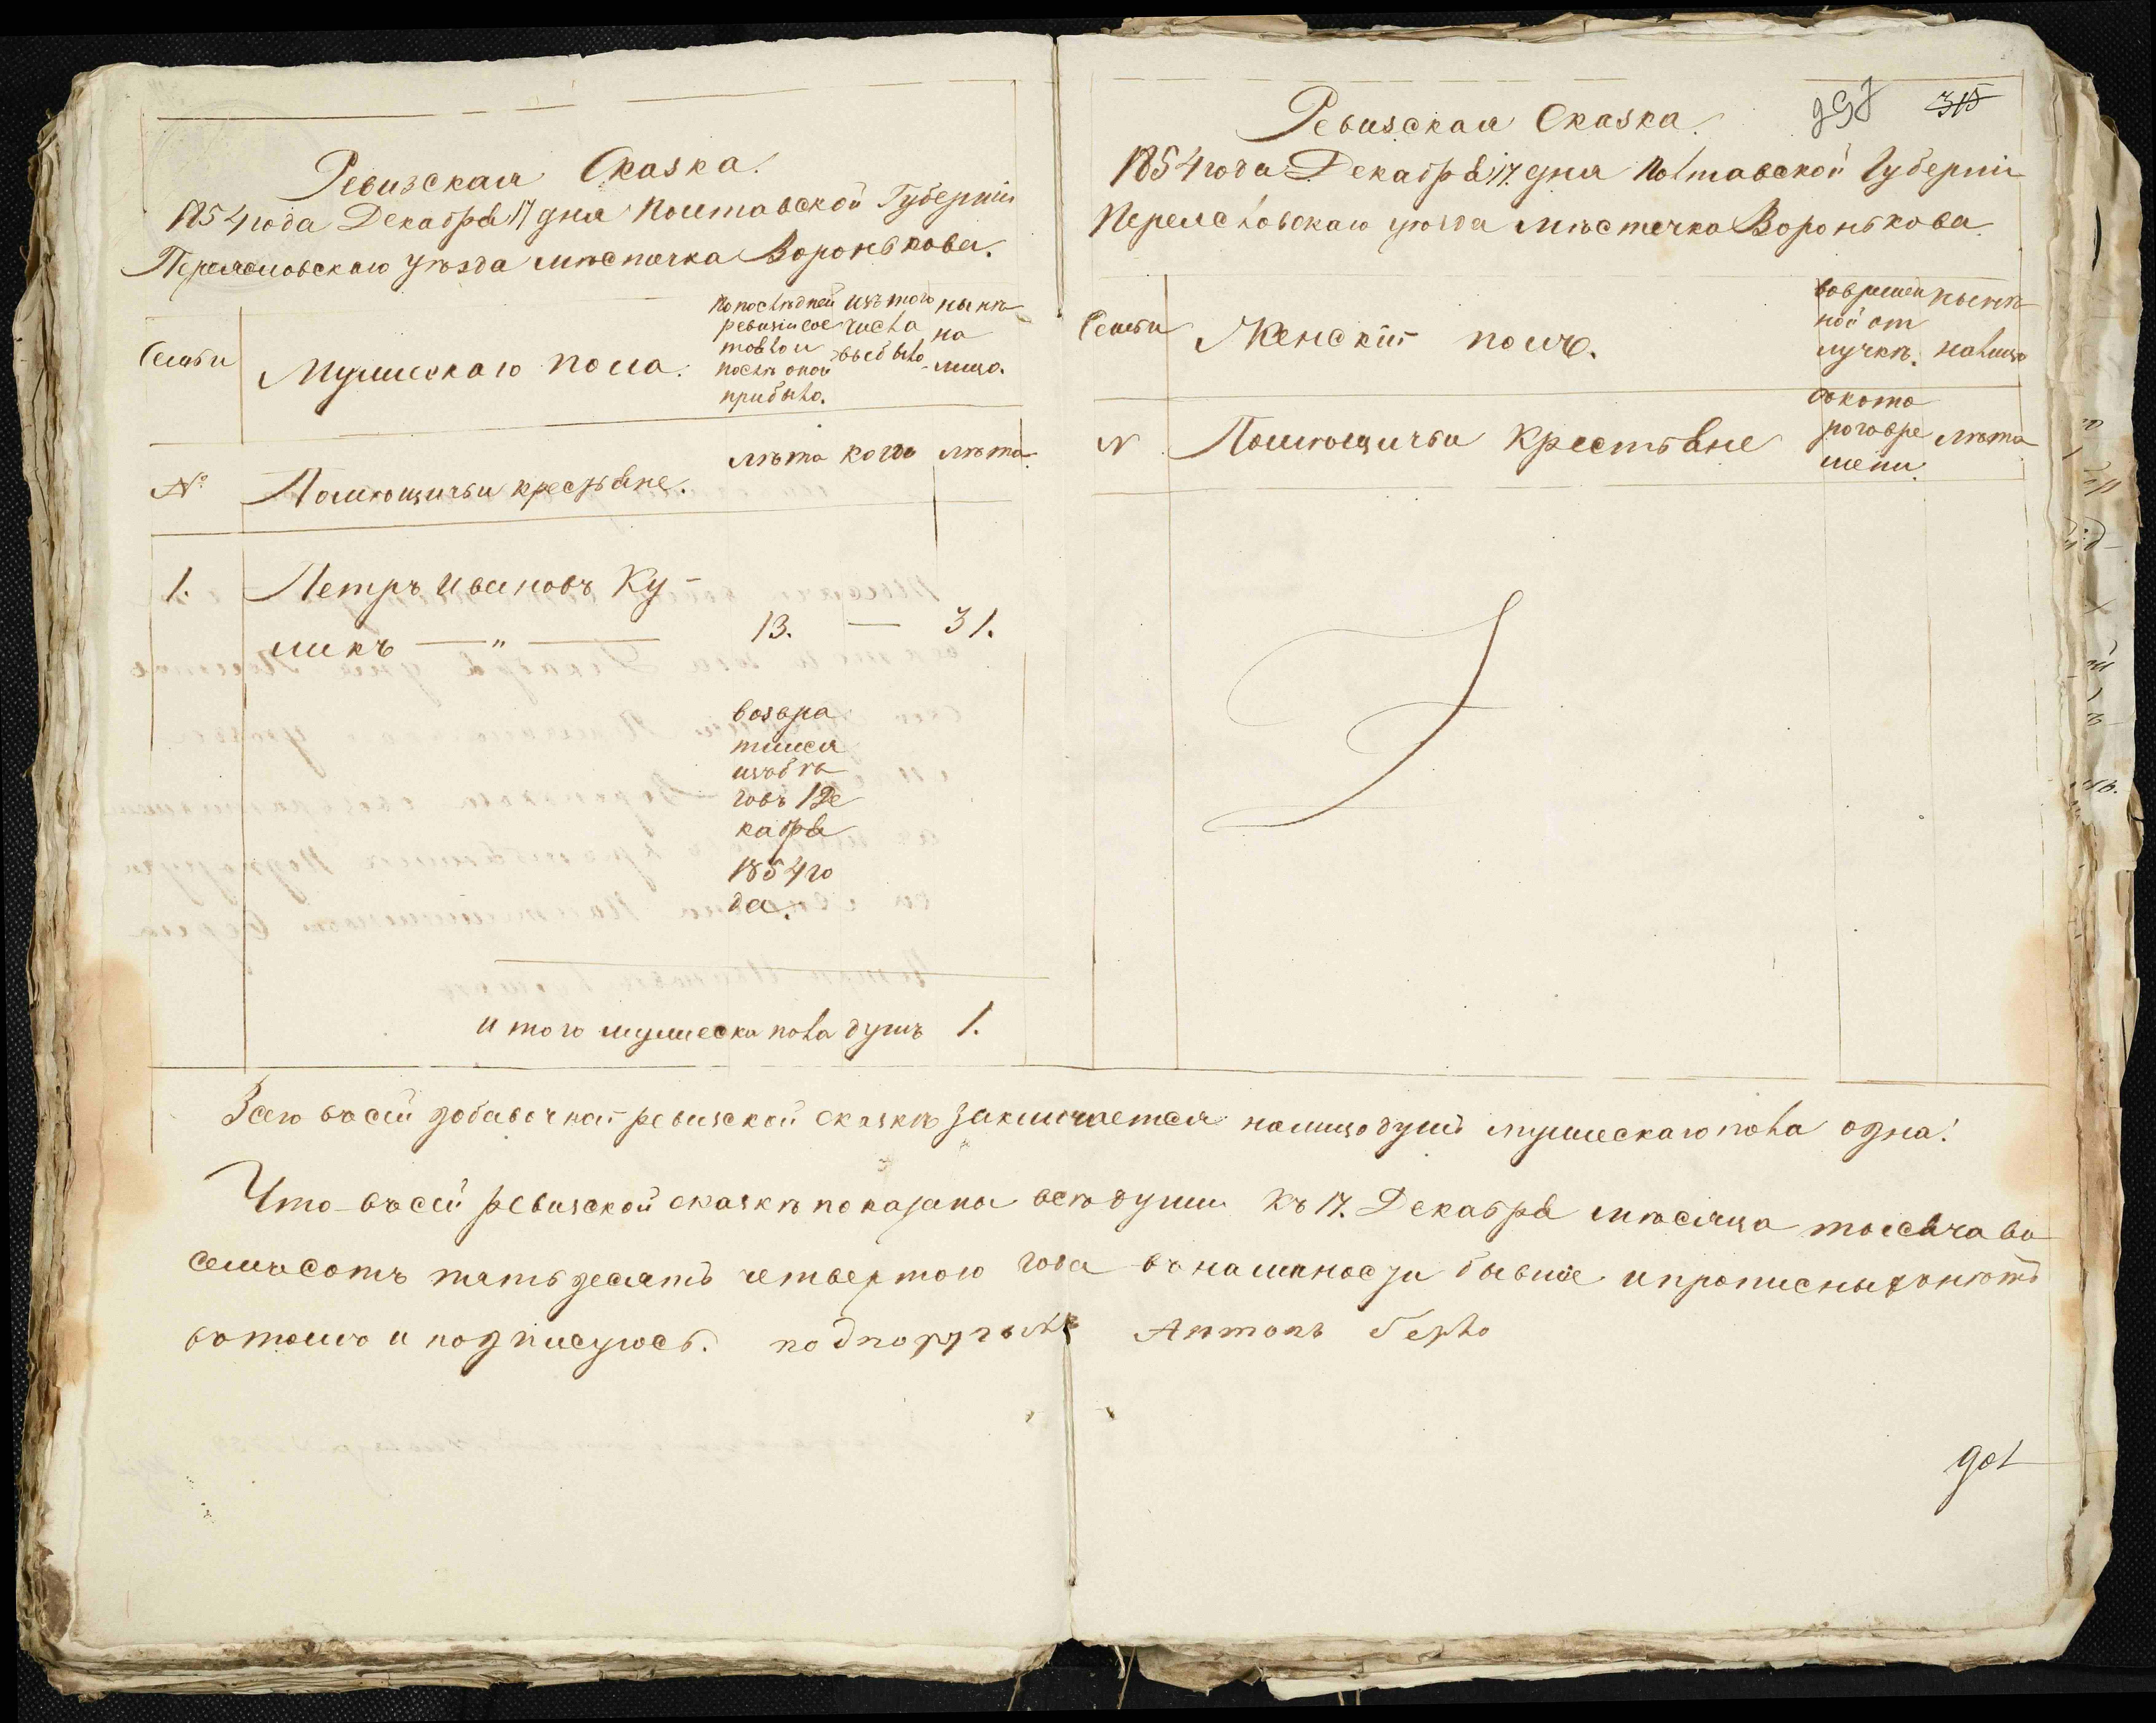 Ревизская Сказка.
1854 года Декабря 17 дня Полтавской Губерніи
Переясловскаго уѣзда мѣстечка Воронькова.
Семьи
Мужескаго пола.
По послѣдней ревизіи состояло и послѣ оной прибыло.
изъ того числа выбыло
нынѣ на лицо.
№
Помѣщичьи крестьяне.
лѣта когда лѣта
1. Петръ Ивановъ Ку-
ликъ — " — 13. — 31.
возвра
тился
изъ бѣ
говъ 1 Де
кабря
1854 го
да.
Итого мужеска пола душъ 1.
Ревизская Сказка.
998 315
1854 года Декабря 17. дня Полтавской Губерніи
Переясловскаго уѣзда мѣстечка Воронькова
Семьи
Женскій полъ.
во времен
ной от
лучкѣ.
нынѣ
налицо
N
Помѣщичьи Крестьяне
съ кото
раго вре
мени.
лѣта
Всего въ сей добавочной ревизской сказкѣ заключается налицо душъ мужескаго пола одна.
Что въ сей ревизской сказкѣ показаны всѣ души къ 17. Декабря мѣсяца тысяча во
семьсотъ пятьдесятъ четвертого года въ наличности бывшіе и прописныхъ нѣтъ
въ томъ и подписуюсь. подпоручикъ Антонъ Герло
901